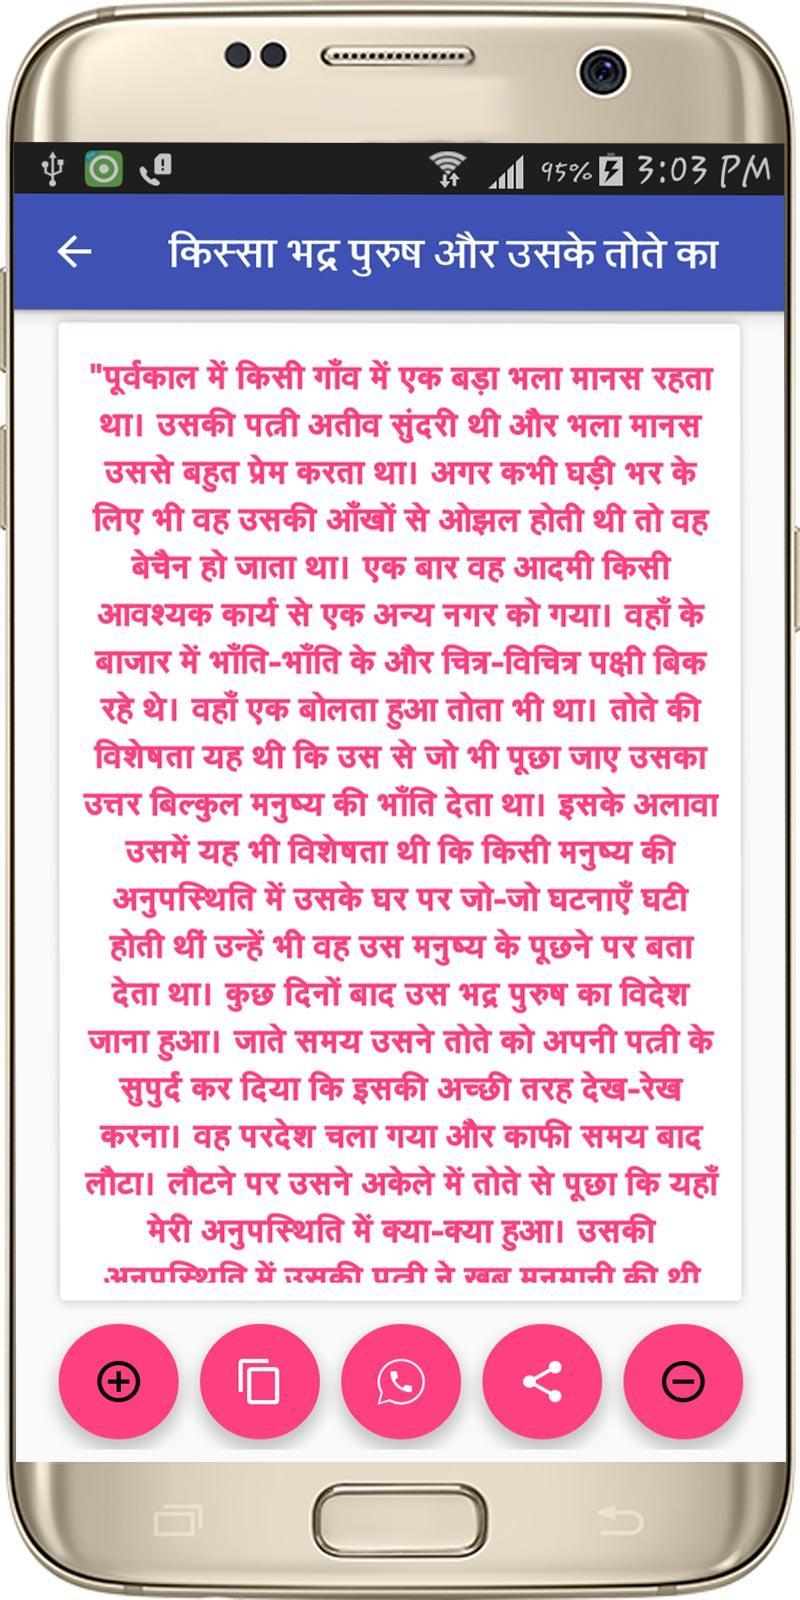 95% 3:03 PM
किस्सा भद्र पुरुष और उसके तोते का
"पूर्वकाल में किसी गाँव में एक बड़ा भला मानस रहता
था। उसकी पत्नी अतीव सुंदरी थी और भला मानस
उससे बहुत प्रेम करता था। अगर कभी घड़ी भर के
लिए भी वह उसकी आँखों से ओझल होती थी तो वह
बेचैन हो जाता था। एक बार वह आदमी किसी
आवश्यक कार्य से एक अन्य नगर को गया। वहाँ के
बाजार में भाँति-भाँति के और चित्र-विचित्र पक्षी बिक
रहे थे। वहाँ एक बोलता हुआ तोता भी था। तोते की
विशेषता यह थी कि उस से जो भी पूछा जाए उसका
उत्तर बिल्कुल मनुष्य की भाँति देता था। इसके अलावा
उसमें यह भी विशेषता थी कि किसी मनुष्य की
अनुपस्थिति में उसके घर पर जो-जो घटनाएँ घटी
होती थीं उन्हें भी वह उस मनुष्य के पूछने पर बता
देता था। कुछ दिनों बाद उस भद्र पुरुष का विदेश
जाना हुआ। जाते समय उसने तोते को अपनी पत्नी के
सुपुर्द कर दिया कि इसकी अच्छी तरह देख-रेख
करना। वह परदेश चला गया और काफी समय बाद
लौटा। लौटने पर उसने अकेले में तोते से पूछा कि यहाँ
मेरी अनुपस्थिति में क्या-क्या हुआ। उसकी
अनुपस्थिति में उसकी पत्नी ने खूब मनमानी की थी